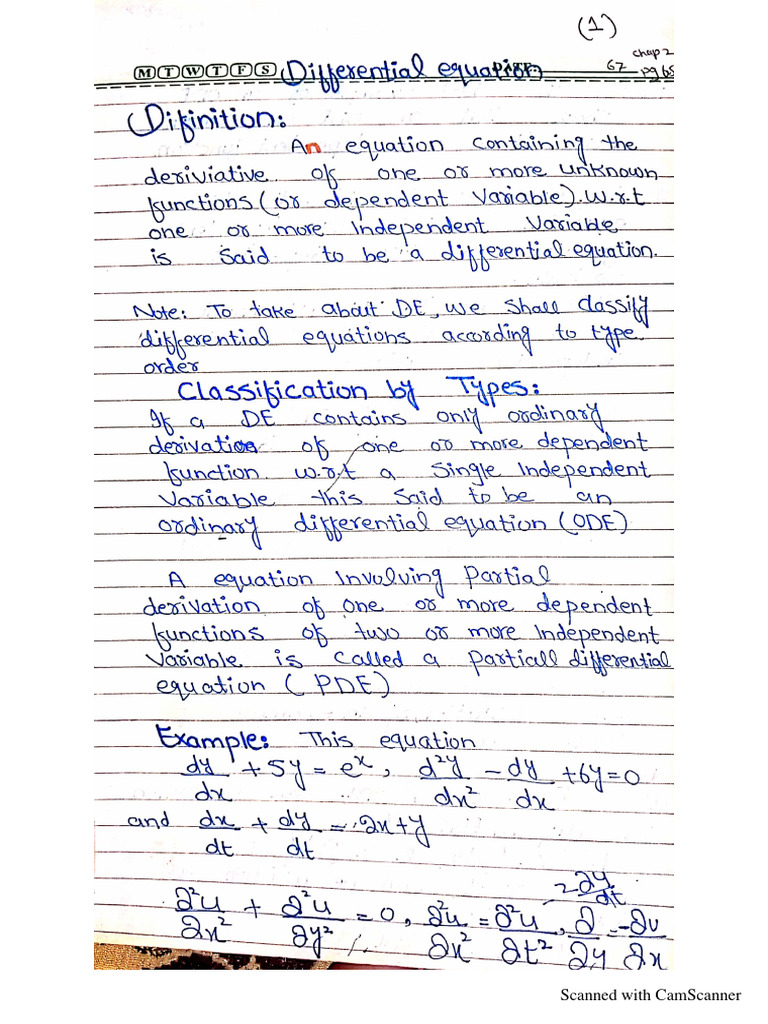 (1)
chap 2
67 pg 65
M T W T F S Differential equation
Difinition:
An equation containing the
deriviative of one or more unknown
functions (or dependent Variable). w.r.t
one or more Independent Variable
is Said to be a differential equation.
Note: To take about DE, we Shall classify
differential equations according to type
order
Classification by Types:
If a DE contains only ordinary
derivation of one or more dependent
function w.r.t a Single Independent
Variable this Said to be an
ordinary differential equation (ODE)
A equation Involving Partial
derivation of one or more dependent
functions of two or more Independent
Variable is called a Partiall differential
equation ( PDE)
Example: This equation
dy/dx + 5y = eˣ, d²y/dx² - dy/dx + 6y = 0
and dx/dt + dy/dt = 2x + y
∂²u/∂x² + ∂²u/∂y² = 0, ∂²u/∂x² = ∂²u/∂t² - 2∂u/∂t, ∂/∂y = -∂v/∂x
Scanned with CamScanner